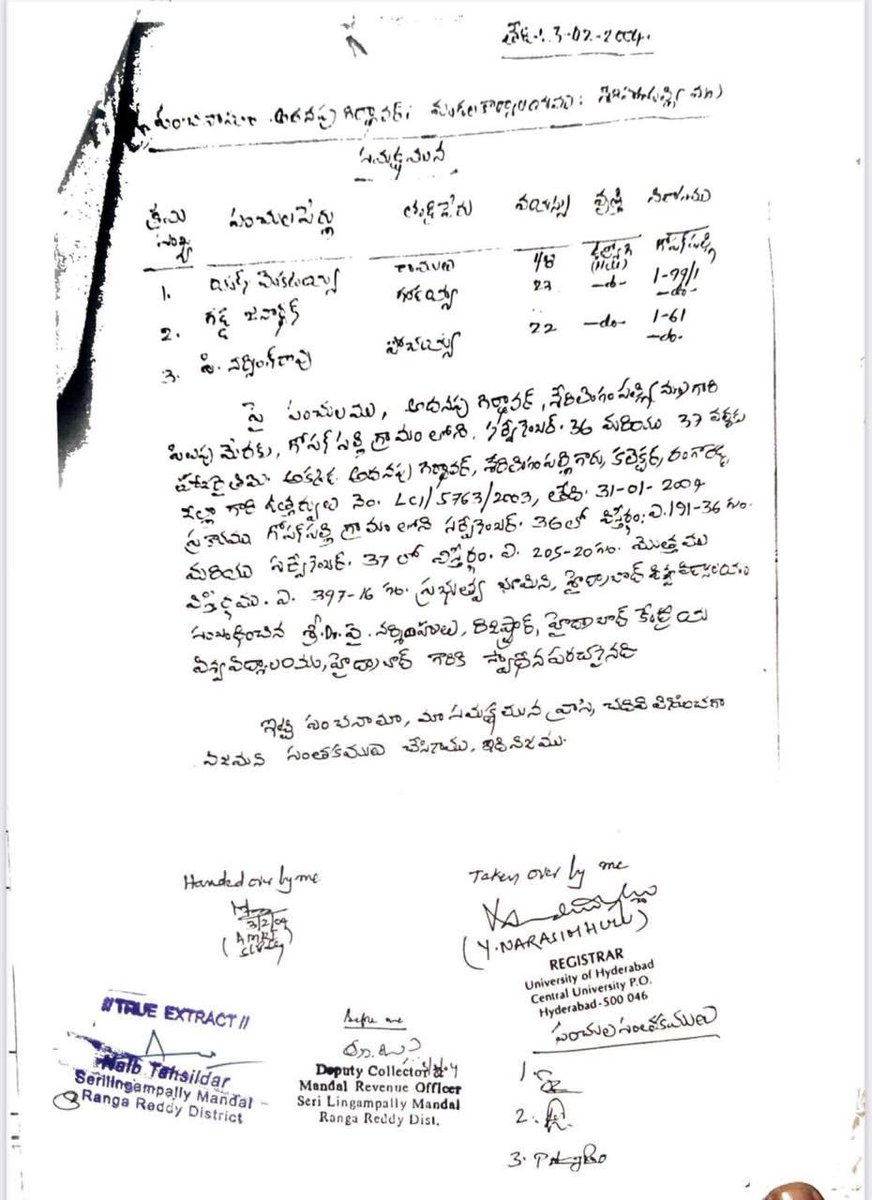 తేది. 3-02-2004.
పంచనామా అదనపు గిర్దావర్, మండల కార్యాలయము: శేరిలింగంపల్లి
సమక్షమున
క్రమ సంఖ్య పంచులపేర్లు తండ్రిపేరు వయస్సు వృత్తి నివాసము
1. రాములు ఉద్యోగి (HCU) గోపన్‌పల్లి 1-99/1
2. జనార్ధన్ 23 -do- -do-
3. పి. నర్సింగ్‌రావు పోచయ్య 22 -do- 1-61 -do-
పై పంచులము, అదనపు గిర్దావర్, శేరిలింగంపల్లి మం॥ గారి
పిలుపు మేరకు, గోపన్‌పల్లి గ్రామంలోని సర్వేనెంబర్. 36 మరియు 37 వద్దకు
హాజరైతిమి. అక్కడ అదనపు గిర్దావర్, శేరిలింగంపల్లి గారు, కలెక్టర్, రంగారెడ్డి
జిల్లా గారి ఉత్తర్వులు నెం. LC1/5763/2003, తేది. 31-01-2004
ప్రకారము గోపన్‌పల్లి గ్రామంలోని సర్వేనెంబర్. 36లో విస్తీర్ణం. ఎ. 191-36 గుం.
మరియు సర్వేనెంబర్. 37 లో విస్తీర్ణం. ఎ. 205-20 గుం. మొత్తము
విస్తీర్ణము. ఎ. 397-16 గుం. ప్రభుత్వ భూమిని, హైద్రాబాద్ విశ్వవిద్యాలయం
సంబంధించిన శ్రీ. Dr. వై. నర్సింహులు, రిజిష్ట్రార్, హైద్రాబాద్ కేంద్రీయ
విశ్వవిద్యాలయం, హైద్రాబాద్ గారికి స్వాధీనపరచనైనది
ఇట్టి పంచనామా, మా సమక్షమున వ్రాసి, చదివి వినిపించగా
నిజమని సంతకములు చేసినాము, ఇది నిజము.
Handed over by me
3/2/04
Taken over by me
(Y. NARASIMHULU)
REGISTRAR
University of Hyderabad
Central University P.O.
Hyderabad-500 046
పంచుల సంతకములు
1.
2.
3.
// TRUE EXTRACT //
Naib Tahsildar
Serilingampally Mandal
Ranga Reddy District
Before me
Deputy Collector &
Mandal Revenue Officer
Seri Lingampally Mandal
Ranga Reddy Dist.